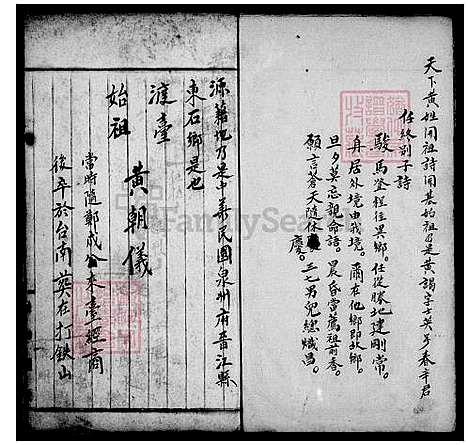 天下黄姓開祖詩開基的祖乃是黄謁字士英号春辛君
任終别子詩
駿馬登程往異鄉。任從勝地建剛常。
身居外境由我境。爾在他鄉即故鄉。
旦夕莫忘親命語。晨昏當薦祖前香。
願言蒼天隨休慶。三七男兒總熾昌。
源籍地乃是中華民國泉州府晋江縣
東石鄉是也
渡臺
始祖 黄朝儀
當時隨鄭成公來臺經商
後卒於台南葬在打鉄山
FamilySearch